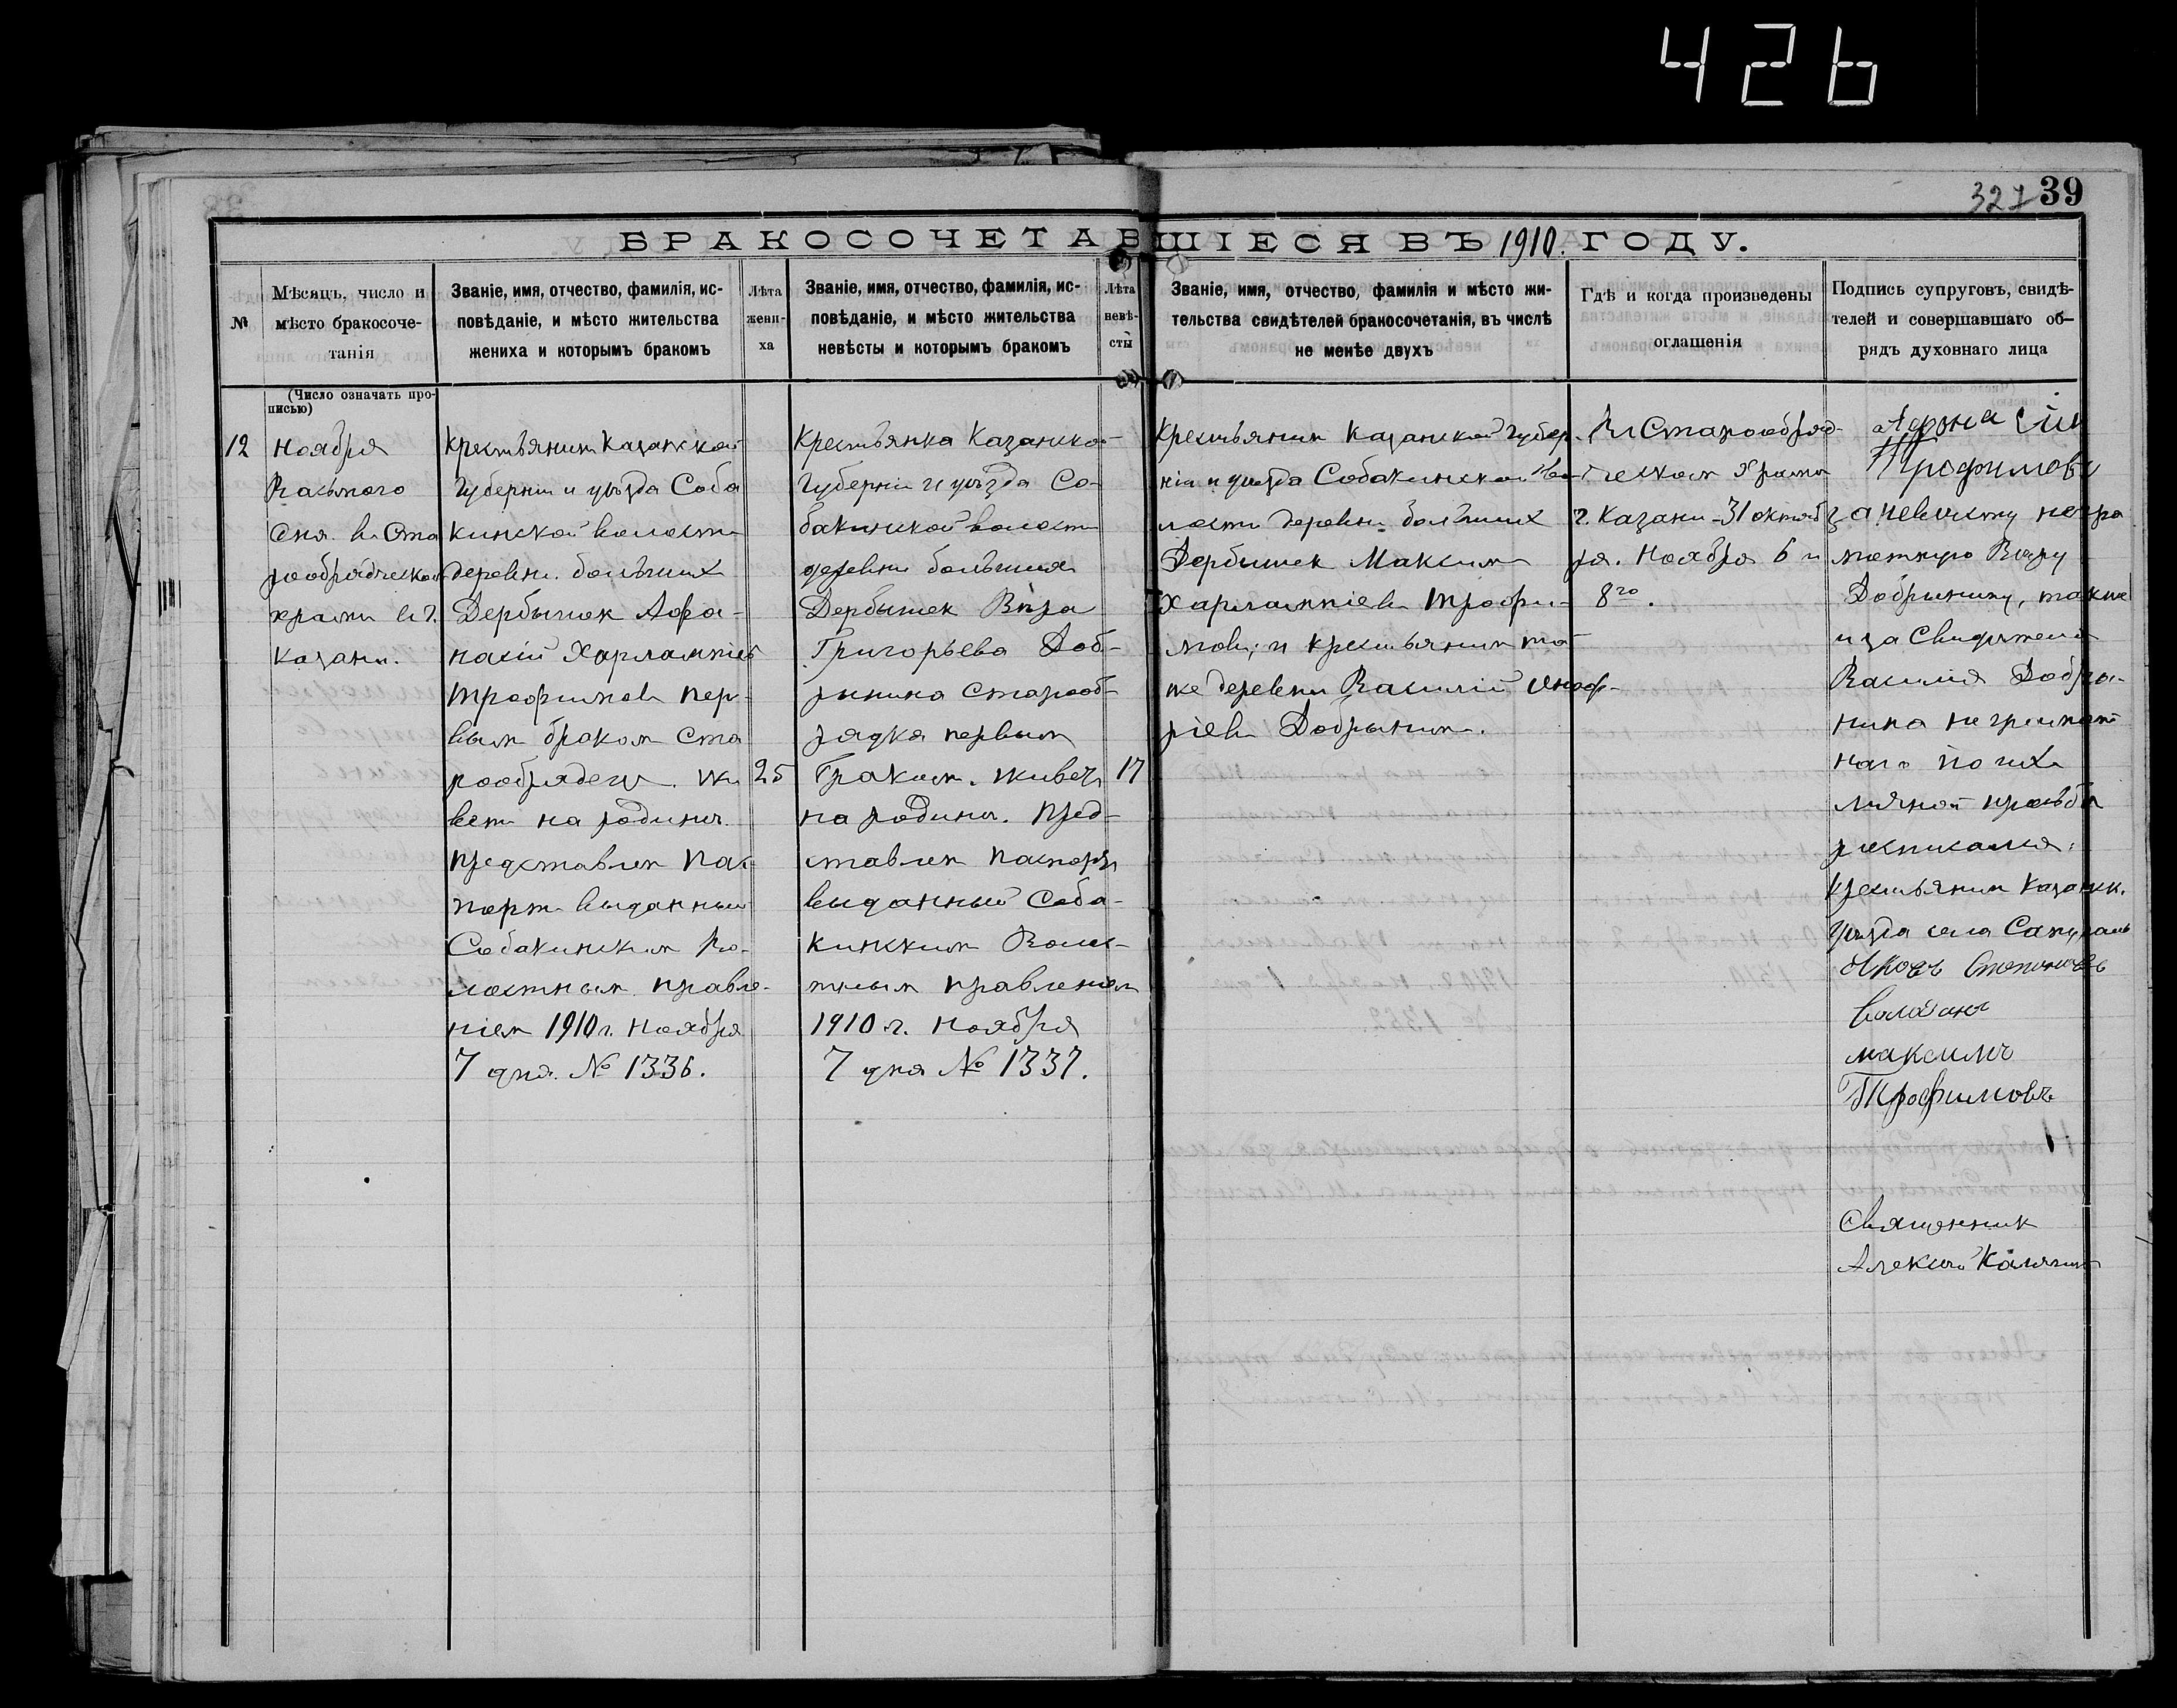 426
327 39
БРАКОСОЧЕТАВШІЕСЯ ВЪ 1910 ГОДУ.
№
Мѣсяцъ, число и
мѣсто бракосоче-
танія
Званіе, имя, отчество, фамилія, ис-
повѣданіе, и мѣсто жительства
жениха и которымъ бракомъ
Лѣта
жени-
ха
Званіе, имя, отчество, фамилія, ис-
повѣданіе, и мѣсто жительства
невѣсты и которымъ бракомъ
Лѣта
невѣ-
сты
Званіе, имя, отчество, фамилія и мѣсто жи-
тельства свидѣтелей бракосочетанія, въ числѣ
не менѣе двухъ
Гдѣ и когда произведены
оглашенія
Подпись супруговъ, свидѣ-
телей и совершавшаго об-
рядъ духовнаго лица
(Число означать про-
писью)
12
Ноября
Восьмого
дня въ Ста
рообрядческом
храмѣ въ г.
Казани.
Крестьянин Казанской
Губерніи и уѣзда Соба
кинской волости
деревни большихъ
Дербышек Афа-
насій Харлампіев
Трофимовъ пер-
вым браком Ста
рообрядецъ. жи
ветъ на родинѣ.
Представлен пас
портъ выданный
Собакинским во-
лостным правле-
ніем 1910 г. Ноября
7 дня. № 1336.
25
Крестьянка Казанской
Губерніи и уѣзда Со-
бакинской волости
деревни большихъ
Дербышек Вѣра
Григорьева Доб-
рынина Старооб-
рядка первым
браком. живетъ
на родинѣ. Пред-
ставлен паспортъ
выданный Соба-
кинским Волос-
тным правленіем
1910 г. Ноября
7 дня № 1337.
17
Крестьянин Казанской Губер-
ніи и уѣзда Собакинской во-
лости деревни большихъ
Дербышек Максим
Харлампіевъ Трофи-
мовъ; и крестьянин той
же деревни Василій
Добрынин.
Въ Старообряд-
ческом храмѣ
г. Казани 31 октяб
ря. Ноября 6 и
8го.
Трофимовъ
за невѣсту негра
мотную Вѣру
Добрынину, также
и за свидѣтеля
Василія Добры-
нина неграмот
наго по ихъ
личной просьбѣ
росписался:
крестьянин Казанск.
уѣзда села
Яковъ
максимъ
Трофимовъ
Священник
Алексѣй Калягин